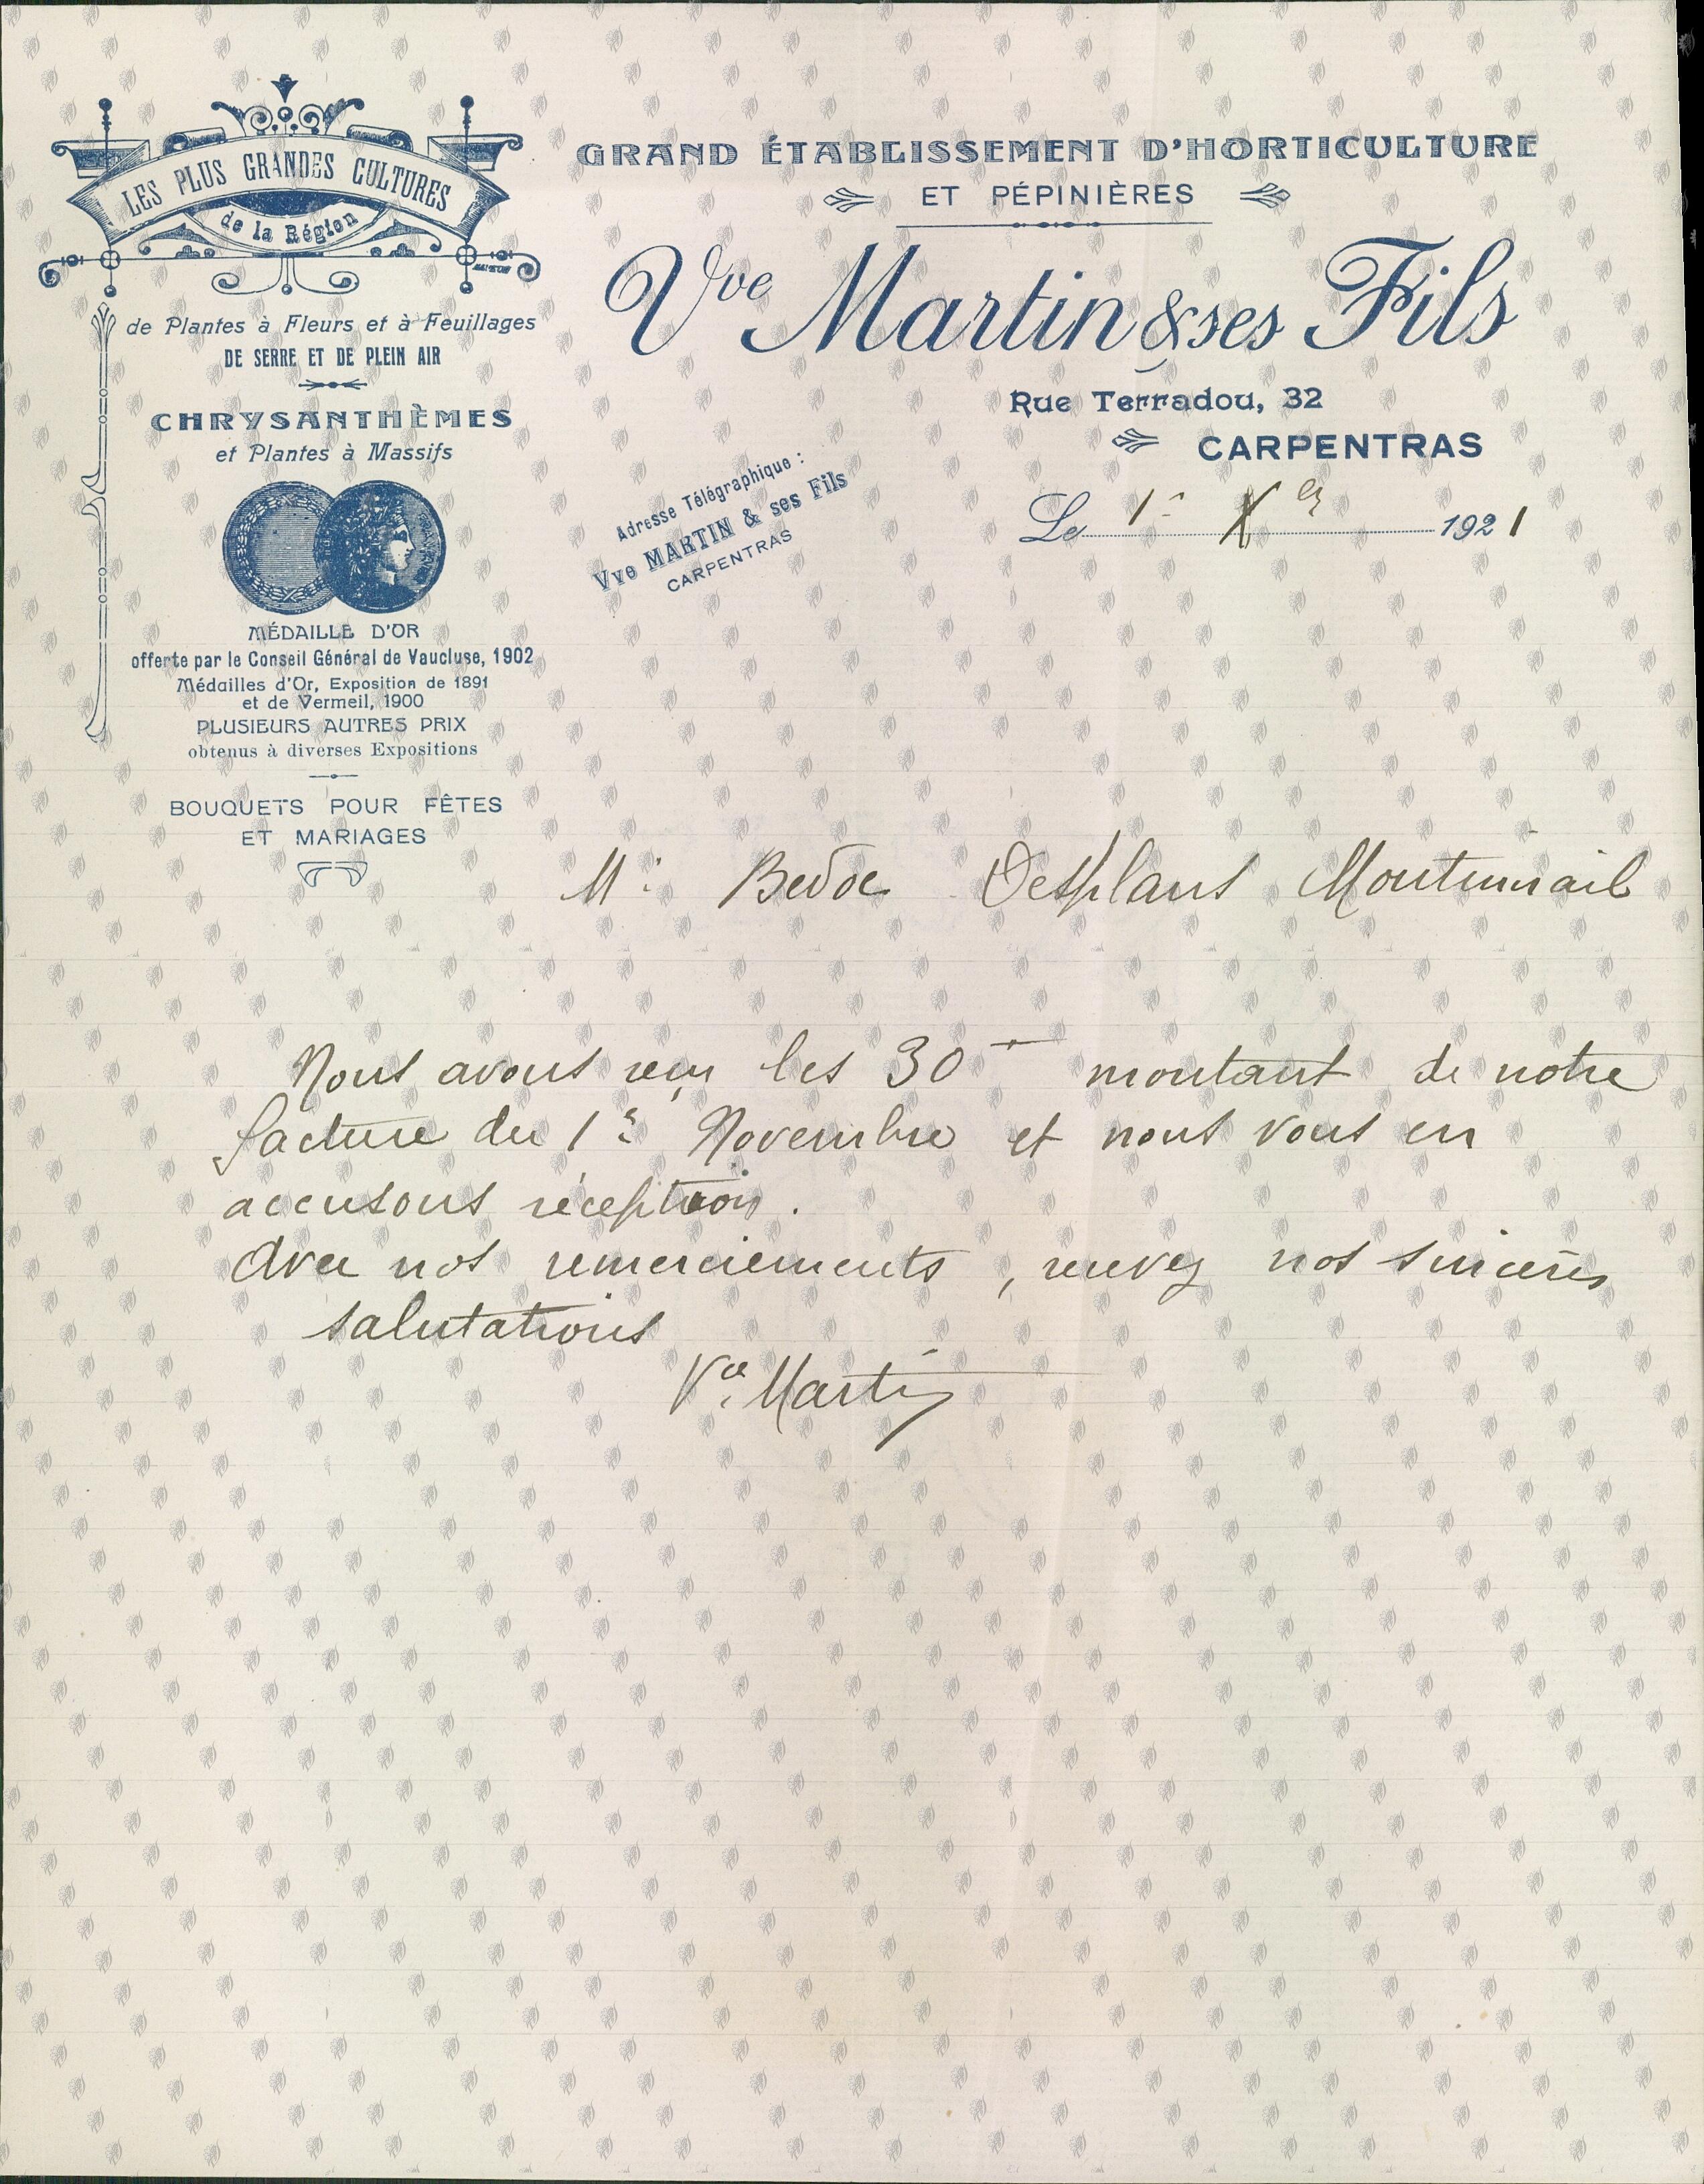 LES PLUS GRANDES CULTURES
de la Région
de Plantes à Fleurs et à Feuillages
DE SERRE ET DE PLEIN AIR
CHRYSANTHÈMES
et Plantes à Massifs
MÉDAILLE D'OR
offerte par le Conseil Général de Vaucluse, 1902
Médailles d'Or, Exposition de 1891
et de Vermeil, 1900
PLUSIEURS AUTRES PRIX
obtenus à diverses Expositions
BOUQUETS POUR FÊTES
ET MARIAGES
GRAND ÉTABLISSEMENT D'HORTICULTURE
ET PÉPINIÈRES
Vve Martin & ses Fils
Rue Terradou, 32
CARPENTRAS
Adresse Télégraphique :
Vve MARTIN & ses Fils
CARPENTRAS
Le 1er Xbre 1921
Mr Bedoc Desplans Montmirail
Nous avons reçu les 30 montant de notre
facture du 1er Novembre et nous vous en
accusons réception.
Avec nos remerciements, recevez nos sincères
salutations
Vve Martin